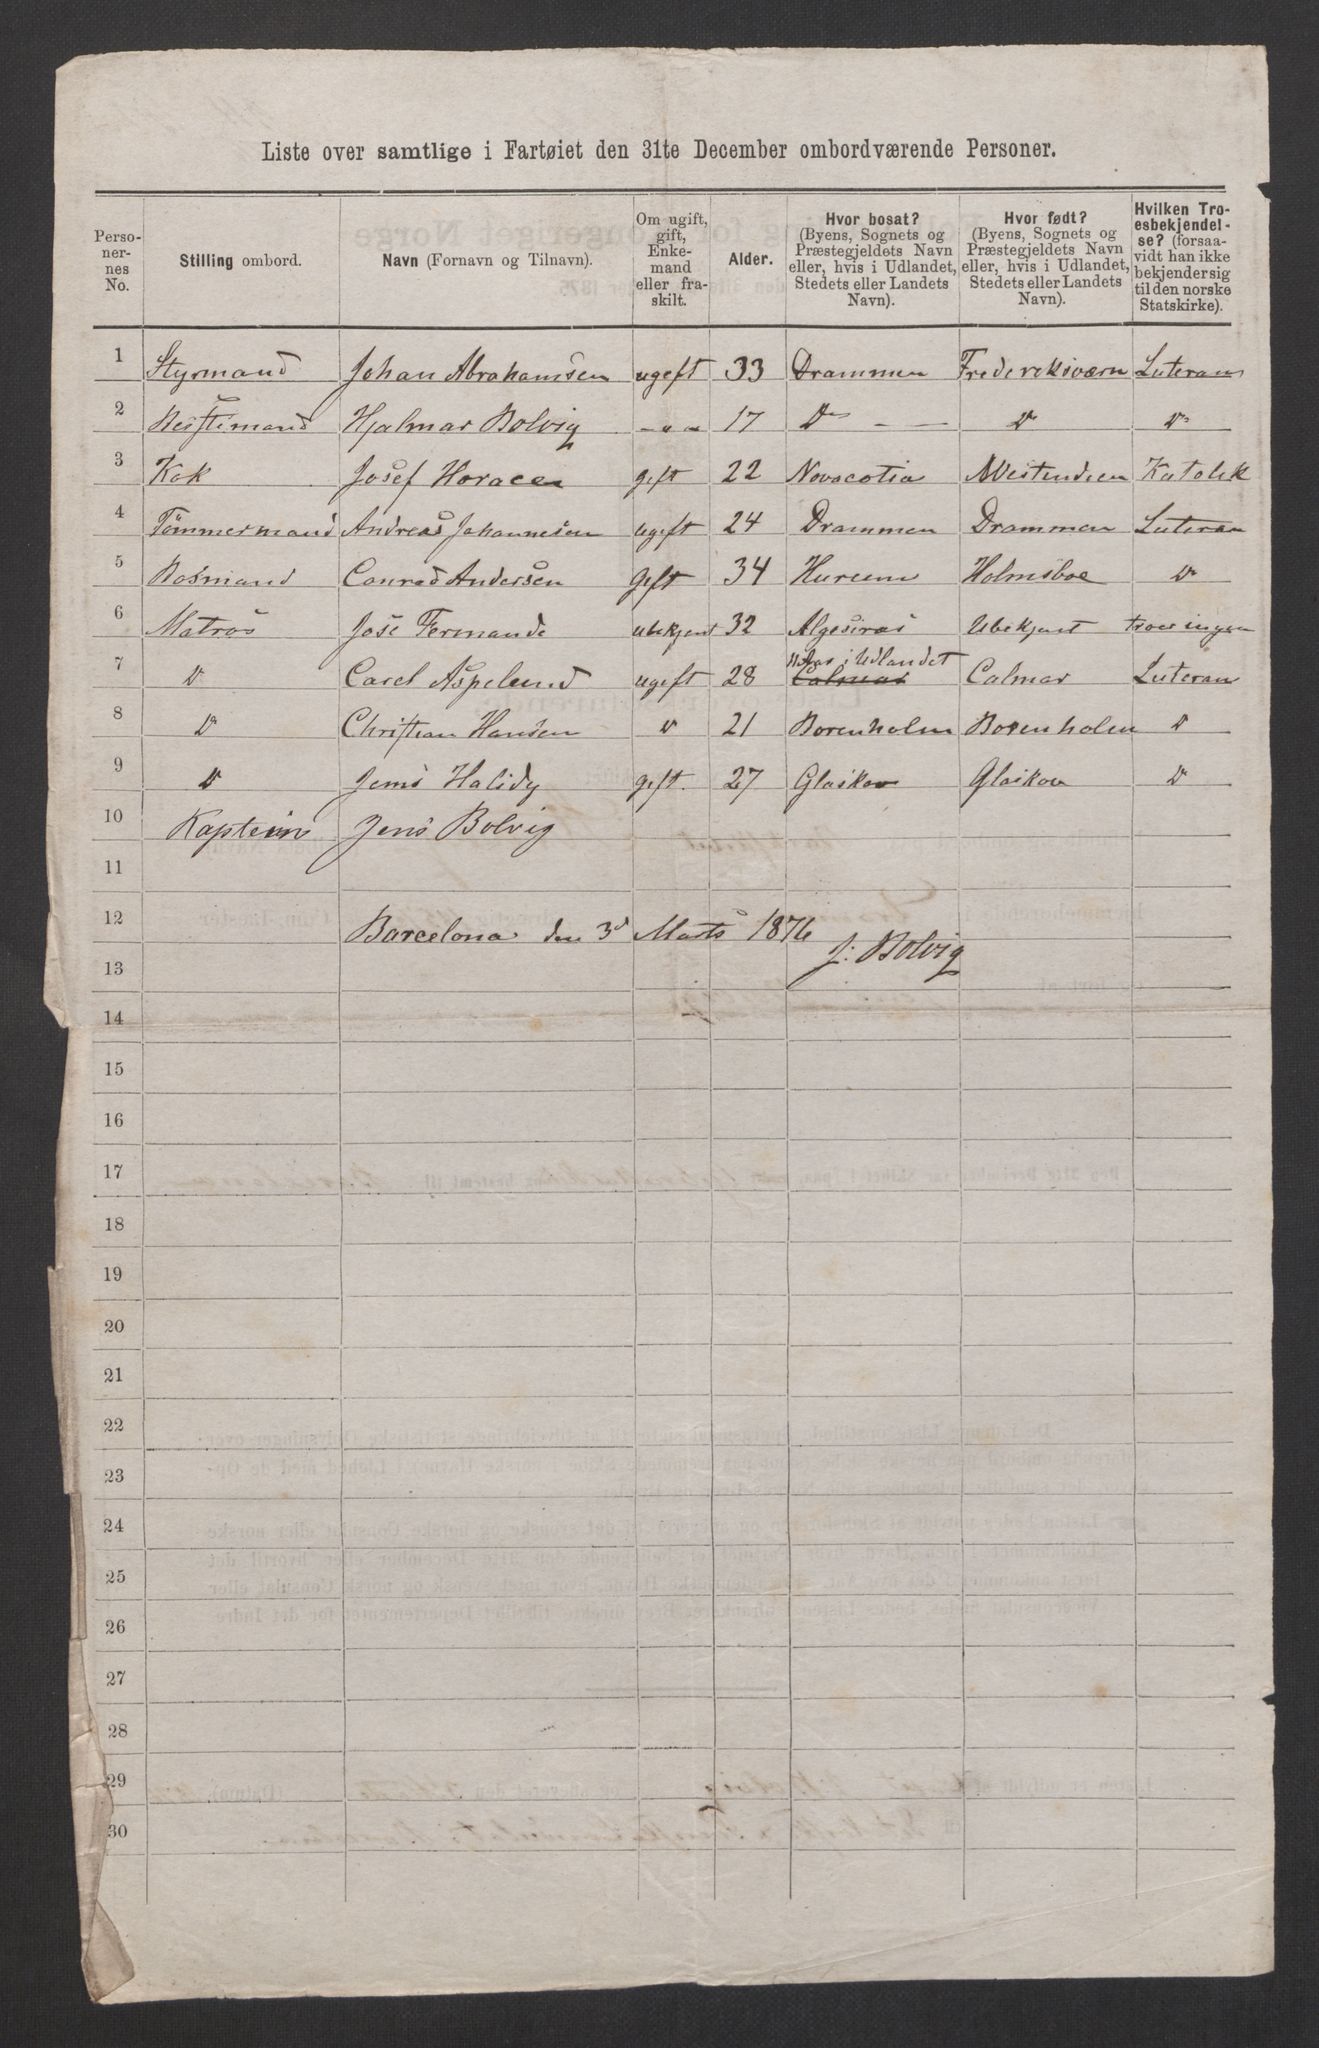 Liste over samtlige i Fartøiet den 31te December ombordværende Personer.
Perso-
ner-
nes
No.
Stilling ombord.
Navn (Fornavn og Tilnavn).
Om ugift,
gift,
Enke-
mand
eller fra-
skilt.
Alder.
Hvor bosat?
(Byens, Sognets og
Præstegjeldets Navn
eller, hvis i Udlandet,
Stedets eller Landets
Navn).
Hvor født?
(Byens, Sognets og
Præstegjeldets Navn
eller, hvis i Udlandet,
Stedets eller Landets
Navn).
Hvilken Tro-
esbekjendel-
se? (forsaa-
vidt han ikke
bekjender sig
til den norske
Statskirke).
1 Styrmand Johan Abrahamsen ugeft 33 Drammen Frederiksværn Luteran
2 Hjalmar Bolvig - „ „ 17 D - - D D
3 Kok Josef Horacen geft 22 Novacotia Westendien Katolek
4 Tömmermand Andreas Johannesen ugeft 24 Drammen Drammen Luteran
5 Bosmand Conrad Andersen geft 34 Hurum Holmsboe D
6 Matros Jose Fernande ubekjent 32 Algesiras Ubekjent troer ingen
7 D Carl Aspelund ugeft 28 i Udlandet Calmar Calmar Luteran
8 D Christian Hansen D 21 Borenholm Borenholm D
9 D Jems Halidy geft. 27 Glaskov Glaskov D
10 Kaptein Jens Bolvig
11
12 Barcelona den 3d Marts 1876
J. Bolvig
13
14
15
16
17
18
19
20
21
22
23
24
25
26
27
28
29
30